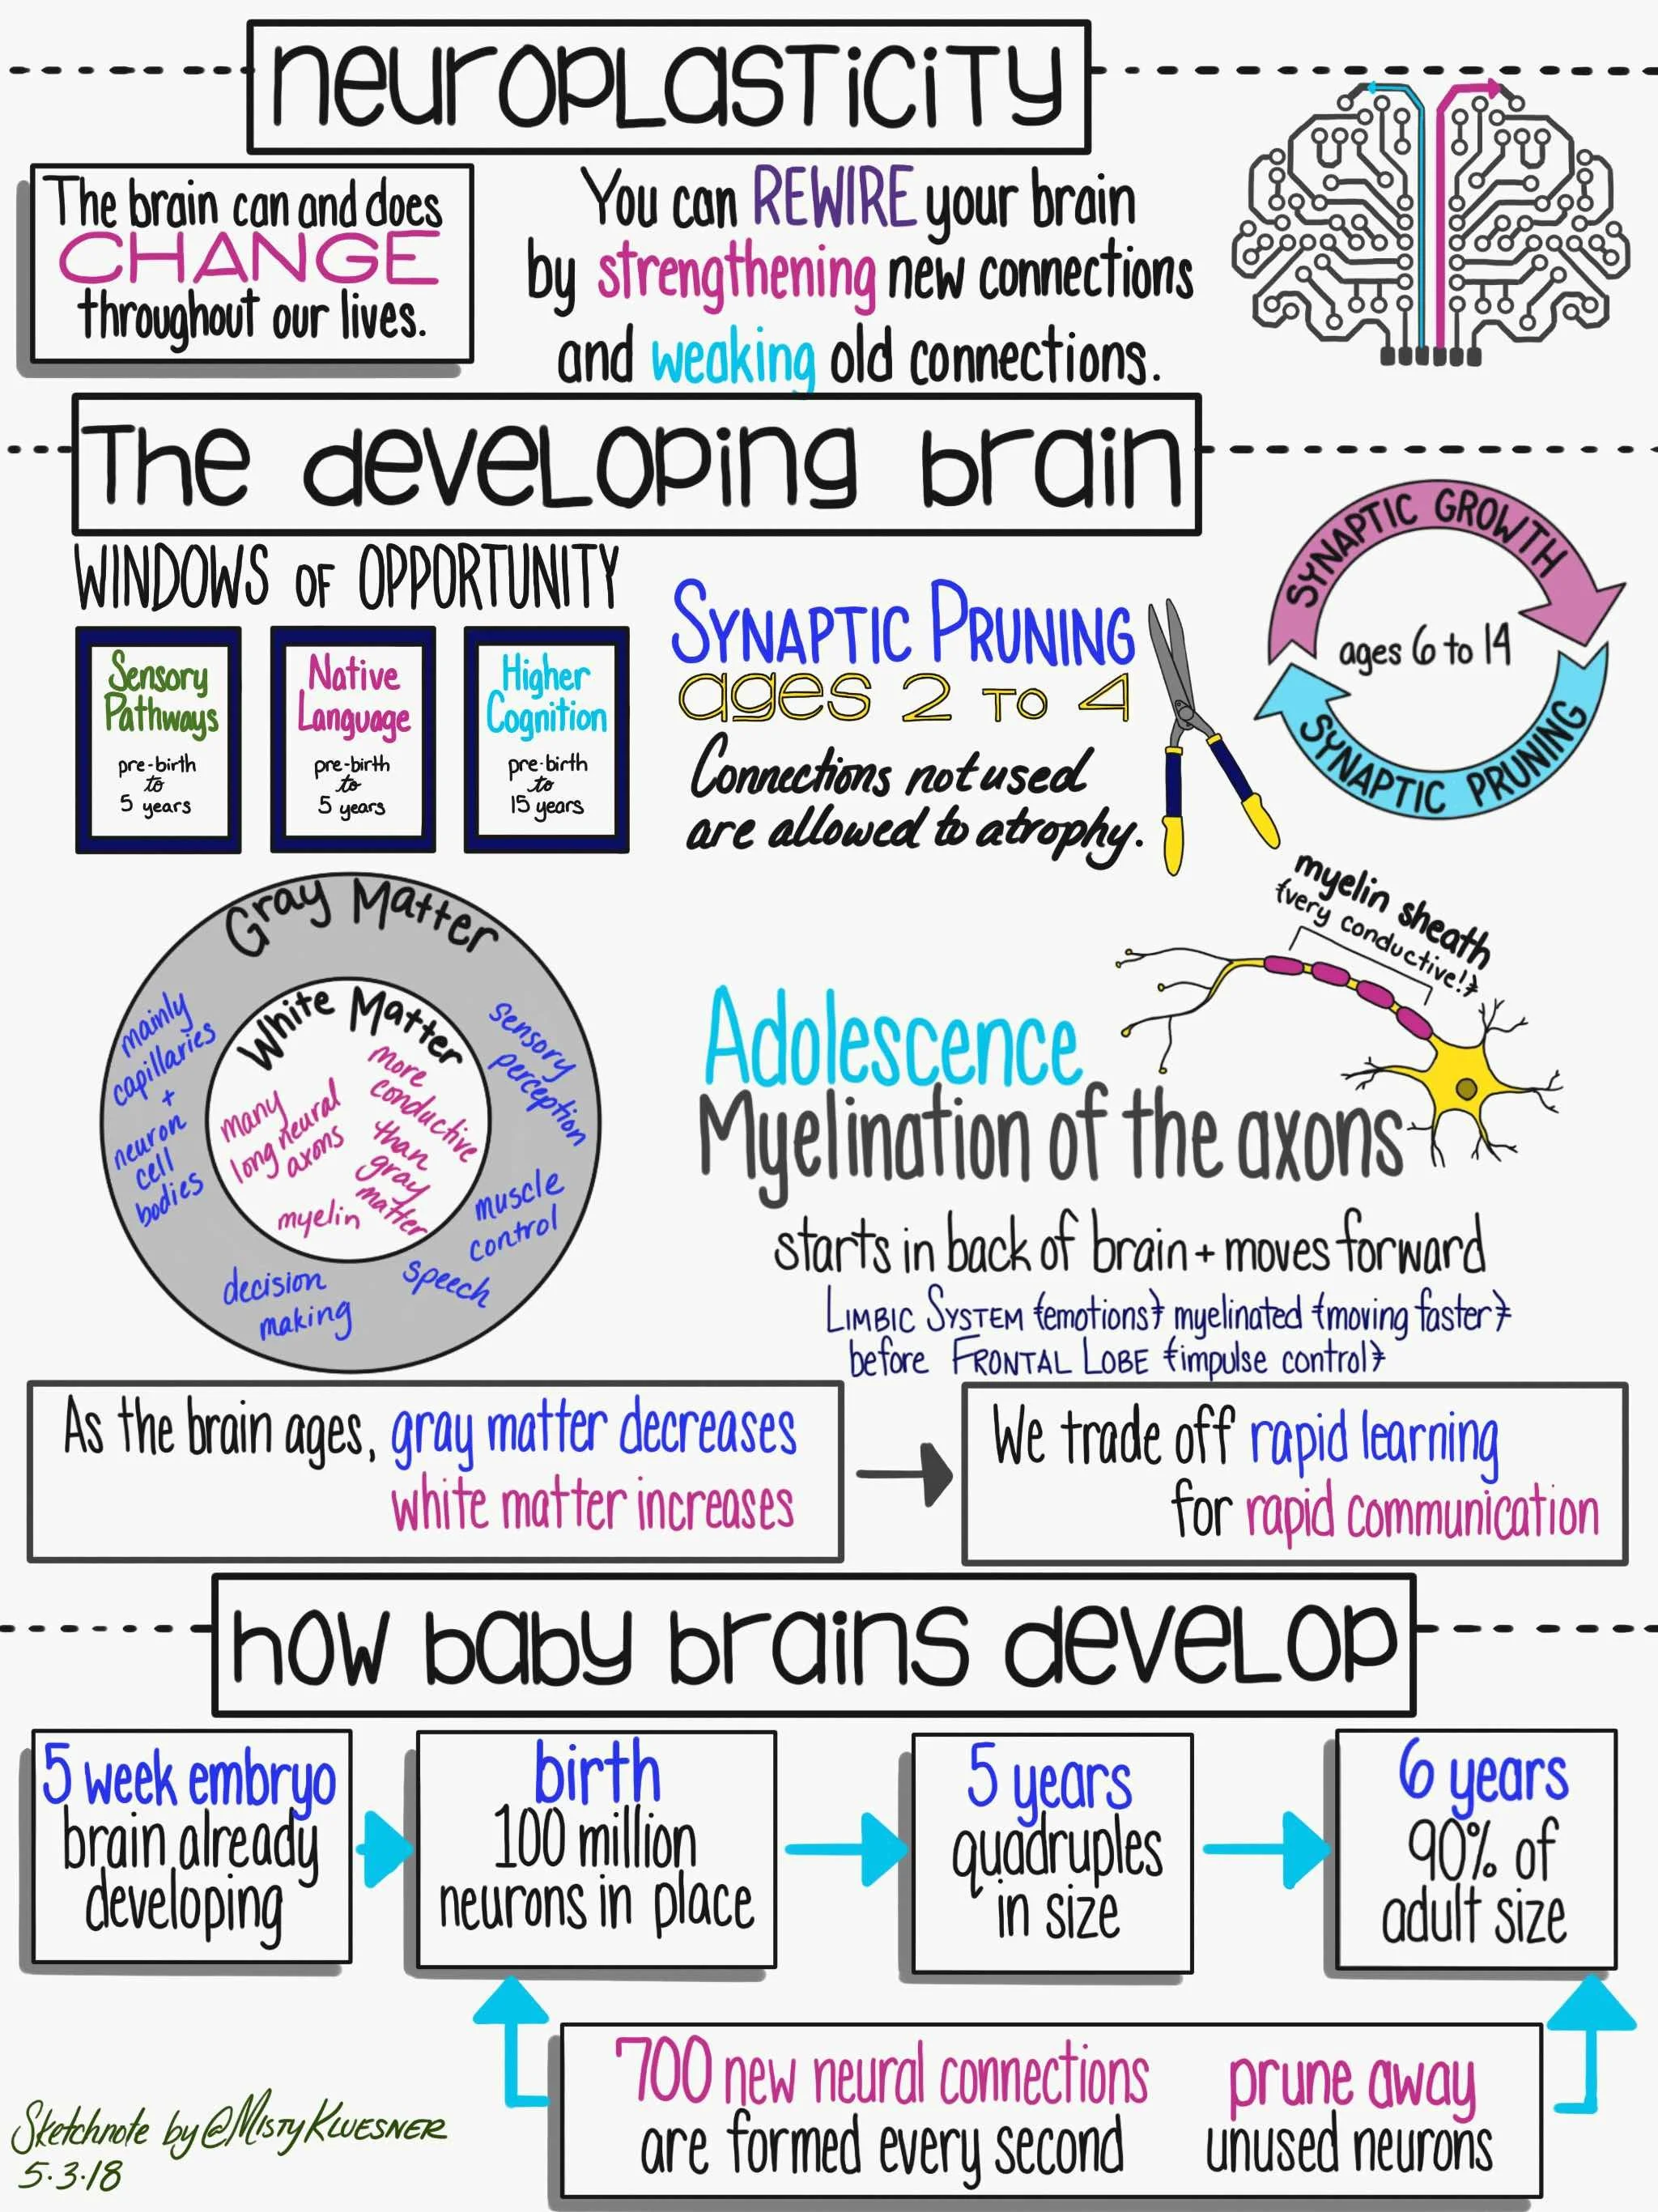 neuroplasticity
The brain can and does
CHANGE
throughout our lives.
You can REWIRE your brain
by strengthening new connections
and weaking old connections.
The developing brain
WINDOWS OF OPPORTUNITY
Sensory
Pathways
pre-birth
to
5 years
Native
Language
pre-birth
to
5 years
Higher
Cognition
pre-birth
to
15 years
SYNAPTIC PRUNING
ages 2 to 4
Connections not used
are allowed to atrophy.
SYNAPTIC GROWTH
ages 6 to 14
SYNAPTIC PRUNING
Gray Matter
mainly
capillaries
+
neuron
cell
bodies
sensory
perception
muscle
control
speech
decision
making
White Matter
many
long neural
axons
myelin
more
conductive
than
gray
matter
myelin sheath
{very conductive!}
Adolescence
Myelination of the axons
starts in back of brain + moves forward
LIMBIC SYSTEM {emotions} myelinated {moving faster}
before FRONTAL LOBE {impulse control}
As the brain ages, gray matter decreases
white matter increases
We trade off rapid learning
for rapid communication
how baby brains develop
5 week embryo
brain already
developing
birth
100 million
neurons in place
5 years
quadruples
in size
6 years
90% of
adult size
700 new neural connections
are formed every second
prune away
unused neurons
Sketchnote by @MISTYKLUESNER
5.3.18